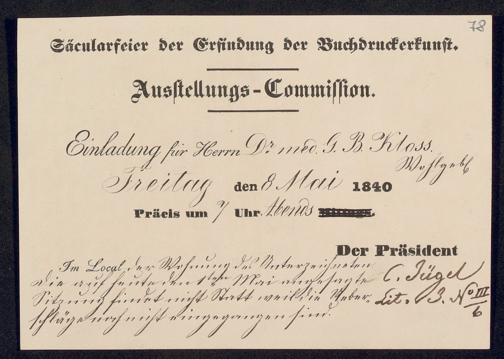 78
Säcularfeier der Erfindung der Buchdruckerkunst.
Ausstellungs-Commission.
Einladung für Herrn Dr med. G. B. Kloss.
Wohlgeb
Freitag den 8 Mai 1840
Präcis um 7 Uhr Abends
Der Präsident
Im Local, der Wohnung des Unterzeichneten
C. Jügel
Die auf heute den Mai angesagte
Lit. B. No III/6
Sitzung findet nicht Statt weil die Ueber-
schläge noch nicht eingegangen sind.